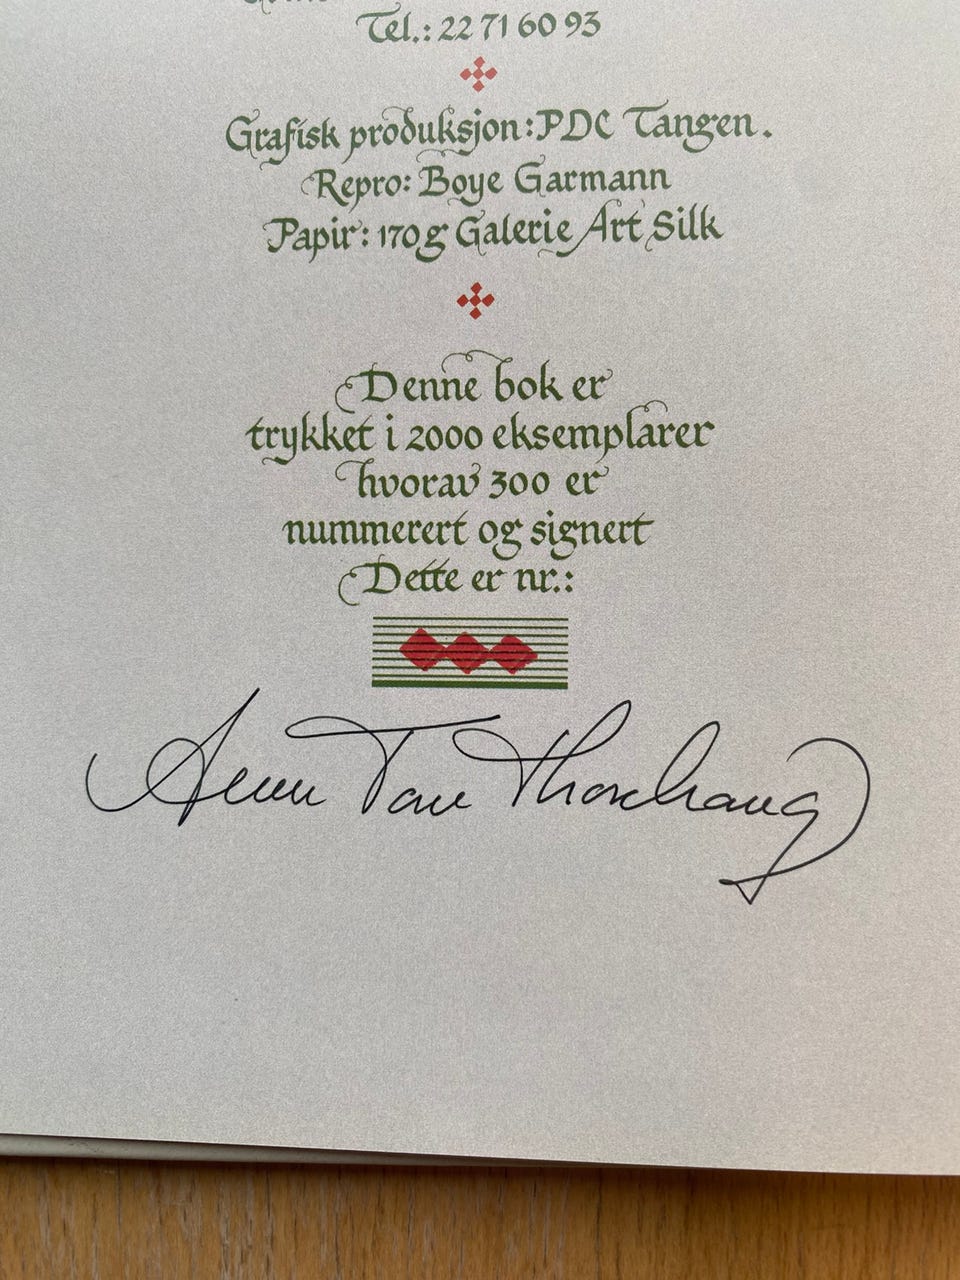 Tel.: 22 71 60 93
Grafisk produksjon: PDC Tangen.
Repro: Boye Garmann
Papir: 170 g Galerie Art Silk
Denne bok er
trykket i 2000 eksemplarer
hvorav 300 er
nummerert og signert
Dette er nr.:
Tove Thorshaug